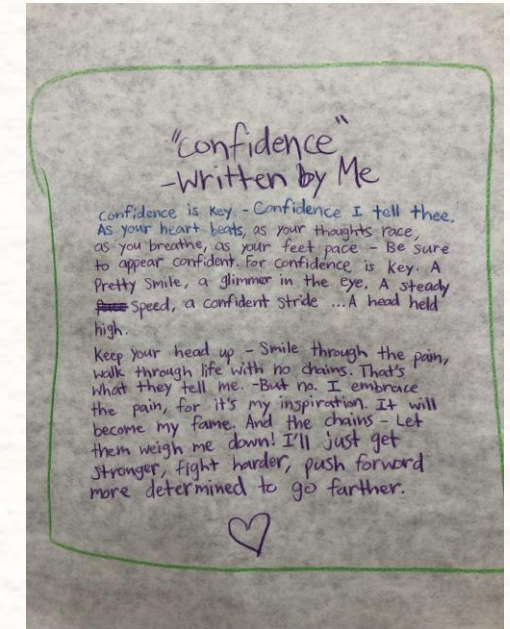 "Confidence"
-Written by Me
Confidence is key - Confidence I tell thee.
As your heart beats, as your thoughts race,
as you breathe, as your feet pace - Be sure
to appear confident. For confidence is key. A
Pretty Smile, a glimmer in the eye. A steady
Speed, a confident stride ... A head held
high.
Keep your head up - Smile through the pain,
walk through life with no chains. That's
what they tell me. -But no. I embrace
the pain, for it's my inspiration. It will
become my fame. And the chains - Let
them weigh me down! I'll just get
stronger, fight harder, push forward
more determined to go farther.